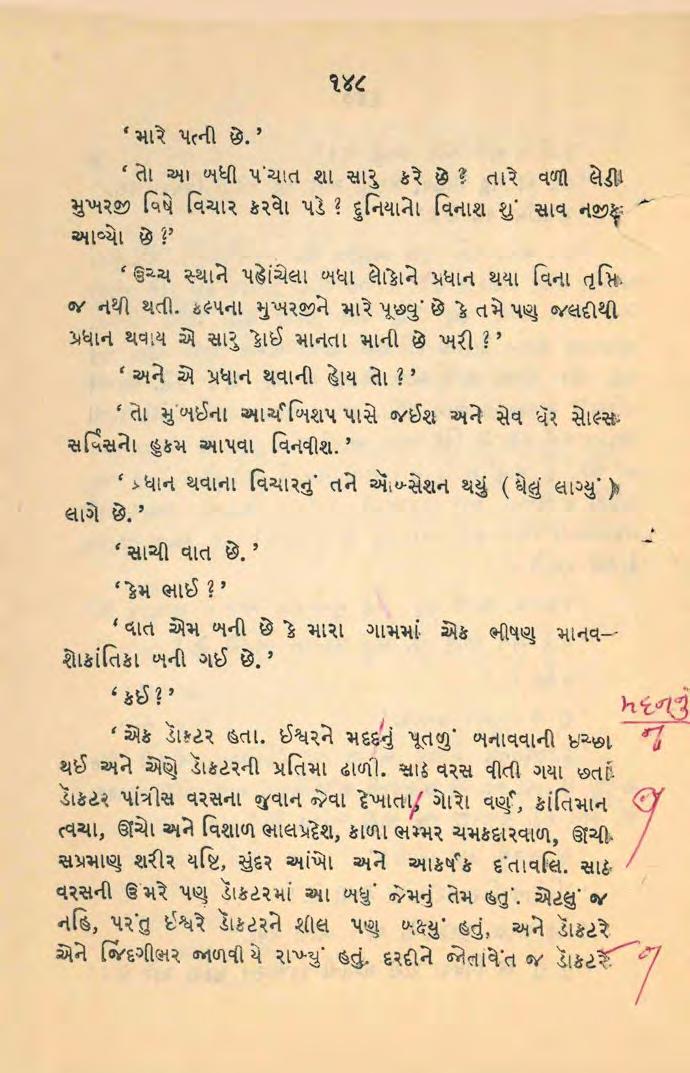 ૧૪૮
‘મારે પત્ની છે.’
‘તો આ બધી પંચાત શા સારુ કરે છે ? તારે વળી લેડી
મુખરજી વિષે વિચાર કરવો પડે ? દુનિયાનો વિનાશ શું સાવ નજીક
આવ્યો છે ?’
‘ઉચ્ચ સ્થાને પહોંચેલા બધા લોકોને પ્રધાન થયા વિના તૃપ્તિ
જ નથી થતી. કલ્પના મુખરજીને મારે પૂછવું છે કે તમે પણ જલદીથી
પ્રધાન થવાય એ સારુ કોઈ માનતા માની છે ખરી ?’
‘અને એ પ્રધાન થવાની હોય તો ?’
‘તો મુંબઈના આર્ચબિશપ પાસે જઈશ અને સેવ ધૅર સોલ્સ
સર્વિસનો હુકમ આપવા વિનવીશ.’
‘પ્રધાન થવાના વિચારનું તને ઑબ્સેશન થયું ( ઘેલું લાગ્યું )
લાગે છે.’
‘સાચી વાત છે.’
‘કેમ ભાઈ ?’
‘વાત એમ બની છે કે મારા ગામમાં એક ભીષણ માનવ–
શોકાંતિકા બની ગઈ છે.’
‘કઈ ?’
મદનનું
‘એક ડૉક્ટર હતા. ઈશ્વરને મદદનું પૂતળું બનાવવાની ઇચ્છા ન
થઈ અને એણે ડૉક્ટરની પ્રતિમા ઢાળી. સાઠ વરસ વીતી ગયા છતાં
ડૉક્ટર પાંત્રીસ વરસના જુવાન જેવા દેખાતા, ગોરો વર્ણ, કાંતિમાન
ત્વચા, ઊંચો અને વિશાળ ભાલપ્રદેશ, કાળા ભમ્મર ચમકદારવાળ, ઊંચી
સપ્રમાણ શરીર યષ્ટિ, સુંદર આંખો અને આકર્ષક દંતાવલિ. સાઠ
વરસની ઉંમરે પણ ડૉક્ટરમાં આ બધું જેમનું તેમ હતું. એટલું જ
નહિ, પરંતુ ઈશ્વરે ડૉક્ટરને શીલ પણ બક્ષ્યું હતું, અને ડૉક્ટરે
એને જિંદગીભર જાળવીયે રાખ્યું હતું. દરદીને જોતાંવેંત જ ડૉક્ટરે